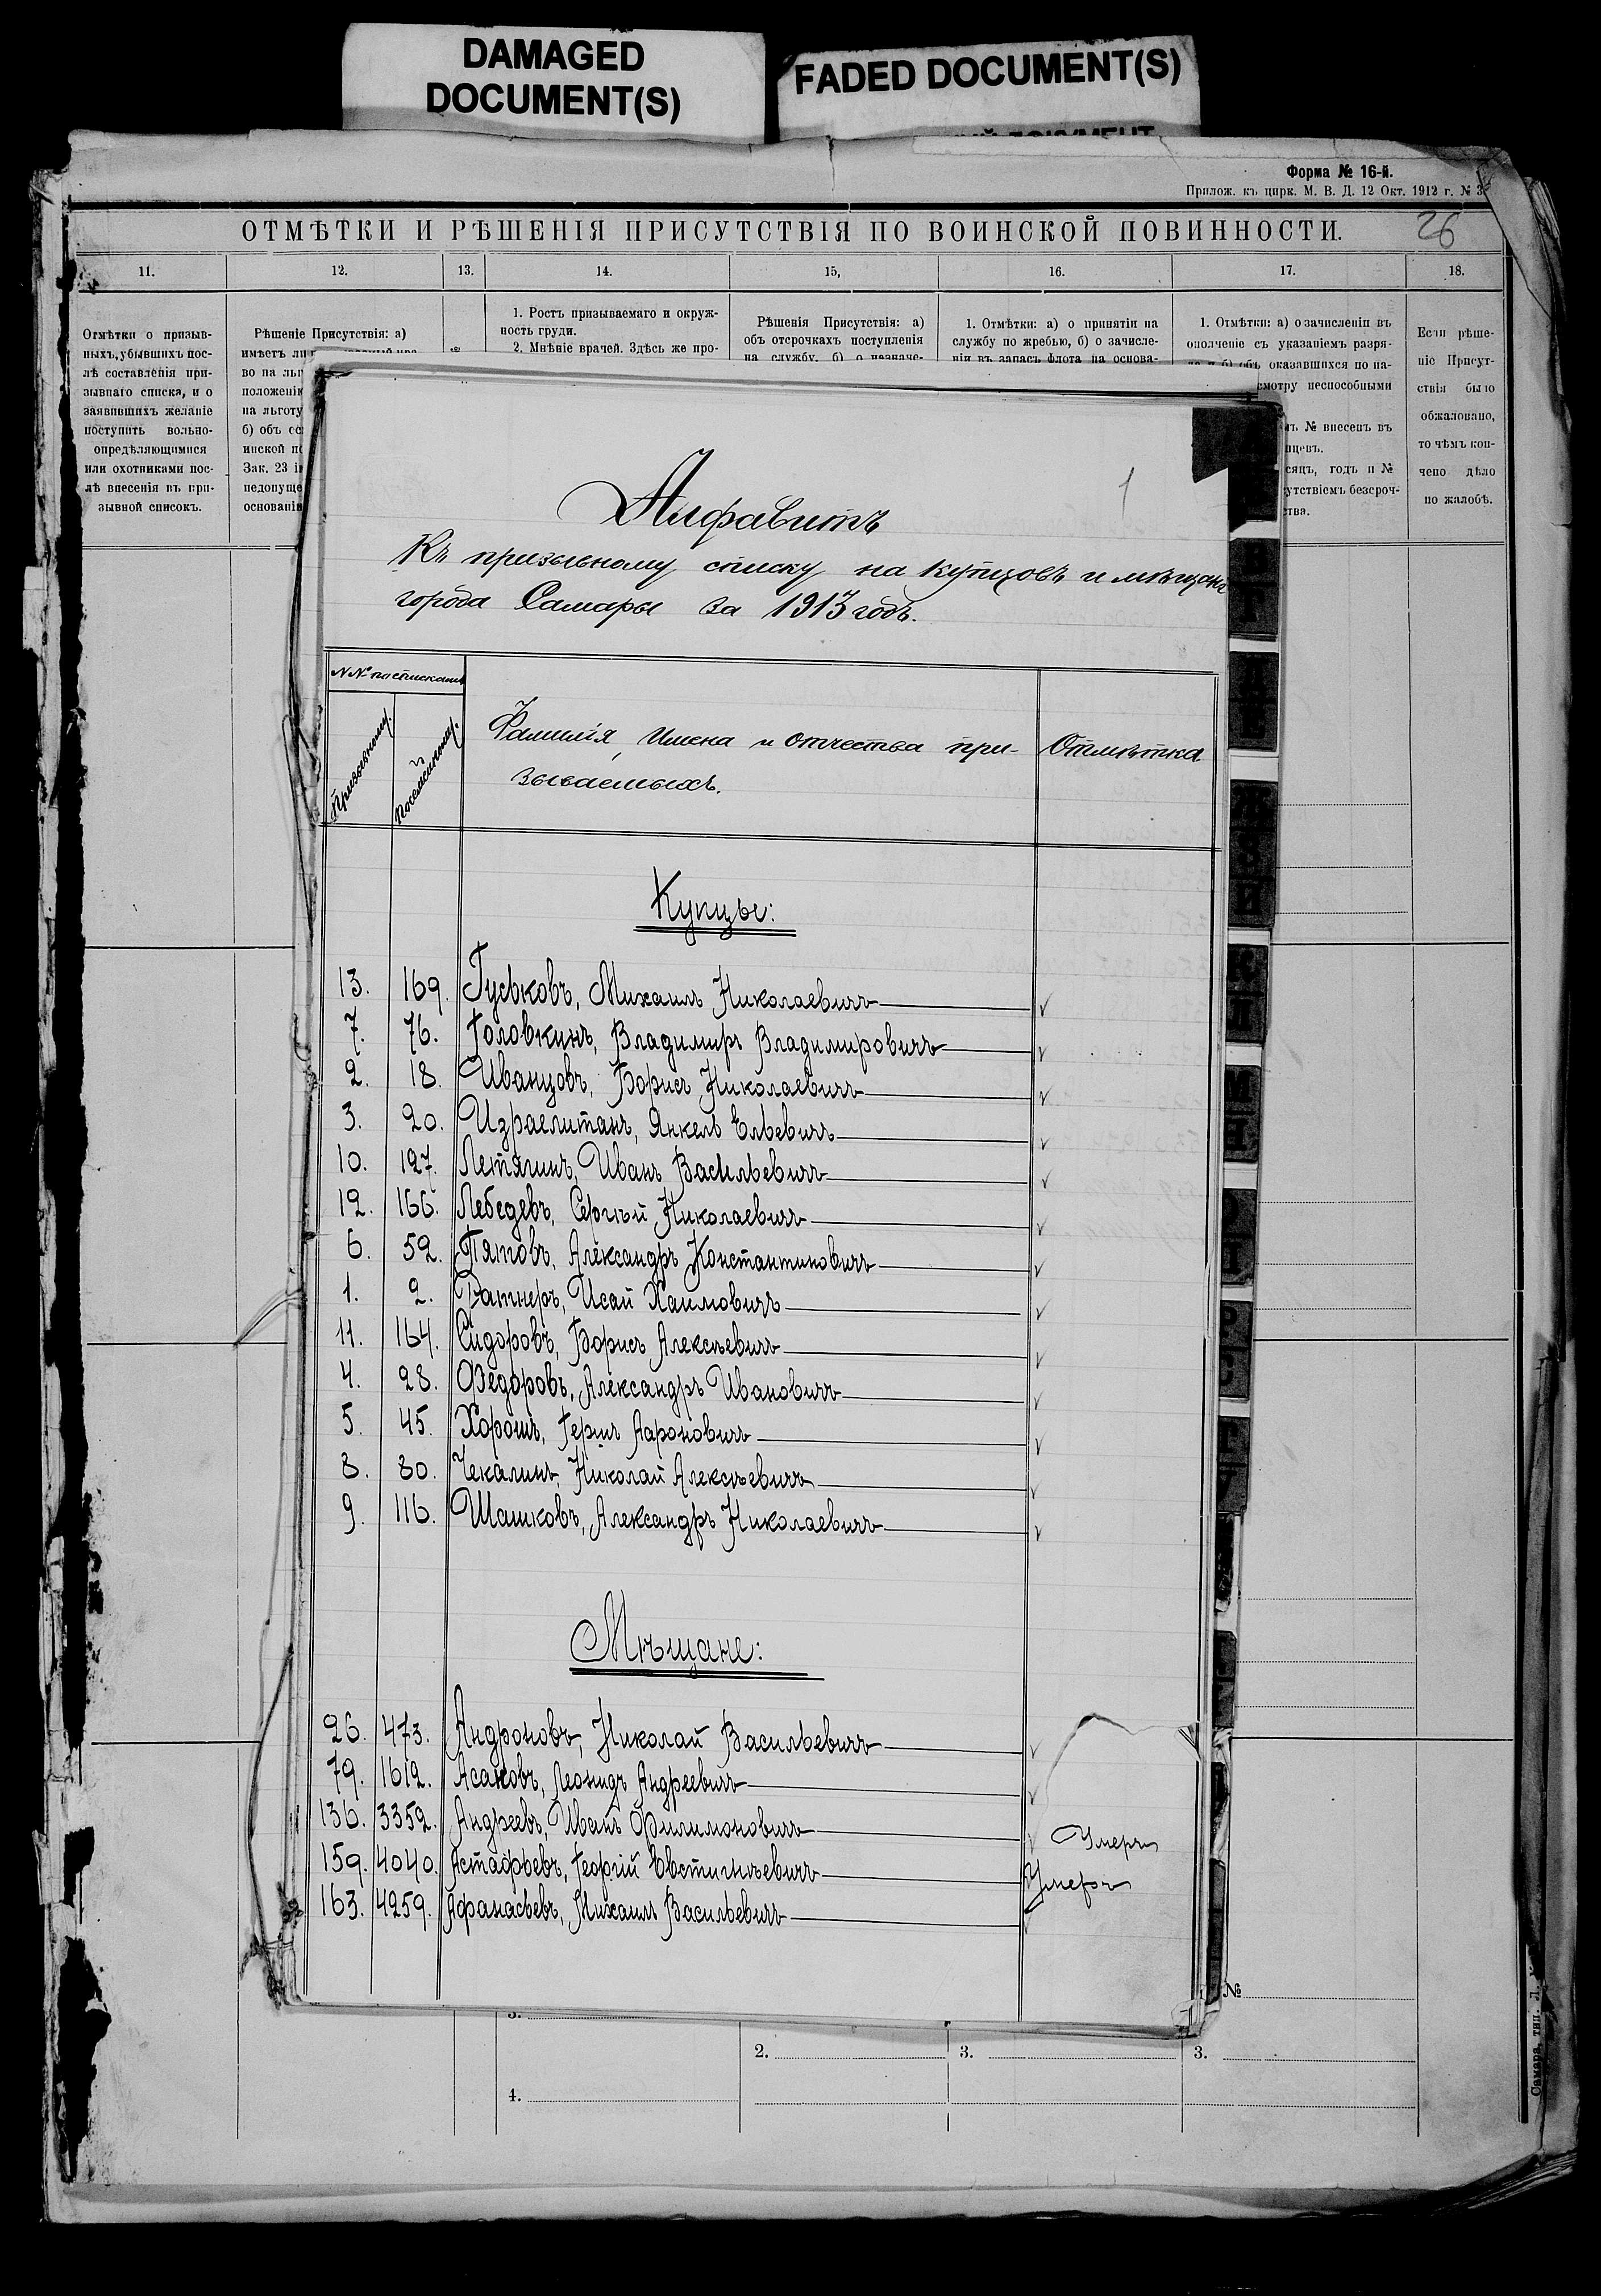 DAMAGED
DOCUMENT(S)
FADED DOCUMENT(S)
Форма № 16-й.
Прилож. къ цирк. М. В. Д. 12 Окт. 1912 г. № 3
ОТМѢТКИ И РѢШЕНІЯ ПРИСУТСТВІЯ ПО ВОИНСКОЙ ПОВИННОСТИ.
26
11. 12. 13. 14. 15, 16. 17. 18.
Отмѣтки о призыв-
ныхъ, убывшихъ пос-
лѣ составленія при-
зывнаго списка, и о
заявившихъ желаніе
поступить вольно-
опредѣляющимися
или охотниками пос-
лѣ внесенія въ при-
зывной списокъ.
Рѣшеніе Присутствія: а)
имѣетъ ли
во на льг
положені
на льготу
б) объ ос
инской по
Зак. 23 і
недопуще
основані
1. Ростъ призываемаго и окруж-
ность груди.
2. Мнѣніе врачей. Здѣсь же про-
Рѣшенія Присутствія: а)
объ отсрочкахъ поступленія
на службу, б) о назначе-
1. Отмѣтки: а) о принятіи на
службу по жребью, б) о зачисле-
ніи въ запасъ флота на основа-
1. Отмѣтки: а) о зачисленіи въ
ополченіе съ указаніемъ разря-
да и б) объ оказавшихся по на-
смотру неспособными
№ внесенъ въ
сяцъ, годъ и №
утствіемъ безсроч-
ства.
Если рѣше-
ніе Присут-
ствія было
обжаловано,
то чѣмъ кон-
чено дѣло
по жалобѣ.
1
Алфавитъ
Къ призывному списку на купцовъ и мѣщанъ
города Самары за 1913 годъ.
N Nº по спискамъ
Призывному.
Посемейному.
Фамилія, Имена и отчества при-
зываемыхъ.
Отмѣтка
Купцы:
13. 169. Гуськовъ, Михаилъ Николаевичъ
7. 76. Головкинъ, Владимиръ Владимировичъ
2. 18. Иванцовъ, Борисъ Николаевичъ
3. 20. Израелитанъ, Янкель Ельевичъ
10. 127. Летягинъ, Иванъ Васильевичъ
12. 166. Лебедевъ, Сергѣй Николаевичъ
6. 52. Пятовъ, Александръ Константиновичъ
1. 2. Ратнеръ, Исай Хаимовичъ
11. 164. Сидоровъ, Борисъ Алексѣевичъ
4. 28. Федоровъ, Александръ Ивановичъ
5. 45. Хорошъ, Гершъ Аароновичъ
8. 80. Чекалинъ, Николай Алексѣевичъ
9. 116. Шашковъ, Александръ Николаевичъ
Мѣщане:
26. 473. Андроновъ, Николай Васильевичъ
79. 1612. Асаковъ, Леонидъ Андреевичъ
136. 3352. Андреевъ, Иванъ Филимоновичъ Умеръ
159. 4040. Астафьевъ, Георгій Евстигнѣевичъ Умеръ
163. 4259. Афанасьевъ, Михаилъ Васильевичъ
№
3.
2. 3. 3.
4.
Самара, тип. Л.